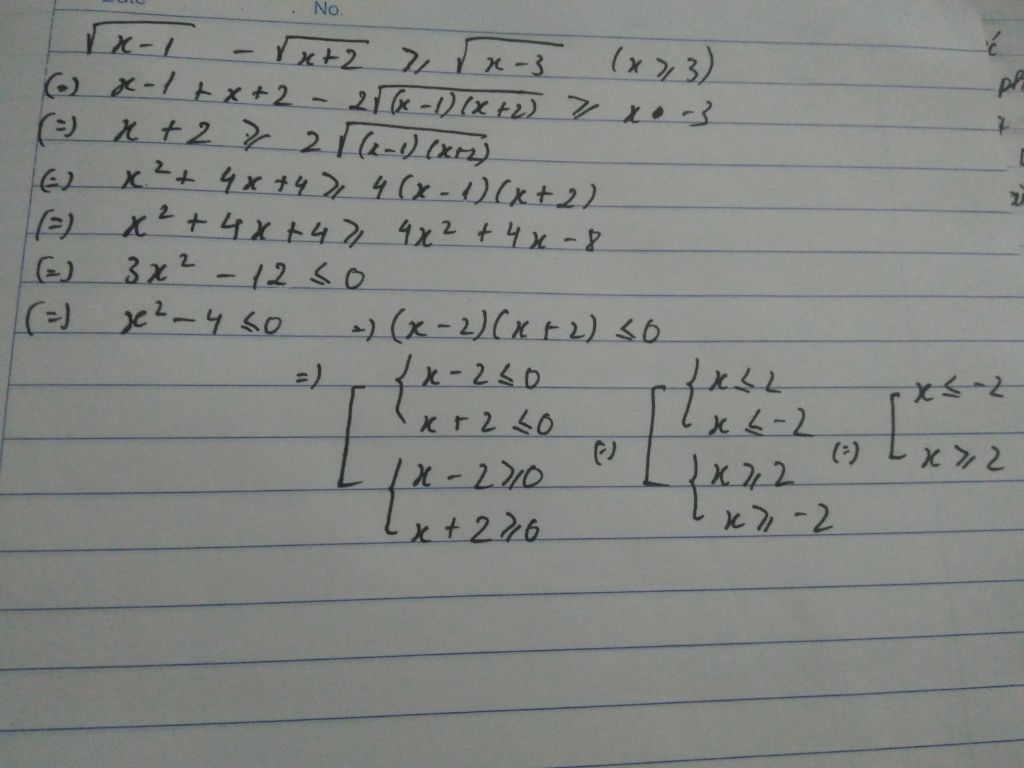 No.
√(x-1) - √(x+2) ≥ √(x-3) (x ≥ 3)
(=) x-1 + x+2 - 2√((x-1)(x+2)) ≥ x -3
(=) x + 2 ≥ 2√((x-1)(x+2))
(=) x² + 4x+4 ≥ 4(x-1)(x+2)
(=) x² + 4x+4 ≥ 4x² + 4x - 8
(=) 3x² - 12 ≤ 0
(=) x² - 4 ≤ 0 =) (x-2)(x+2) ≤ 0
=) [ { x-2 ≤ 0 [ { x ≤ 2 [ x ≤ -2
x+2 ≤ 0 (=) x ≤ -2 (=)
{ x-2 ≥ 0 { x ≥ 2 x ≥ 2
x+2 ≥ 0 x ≥ -2